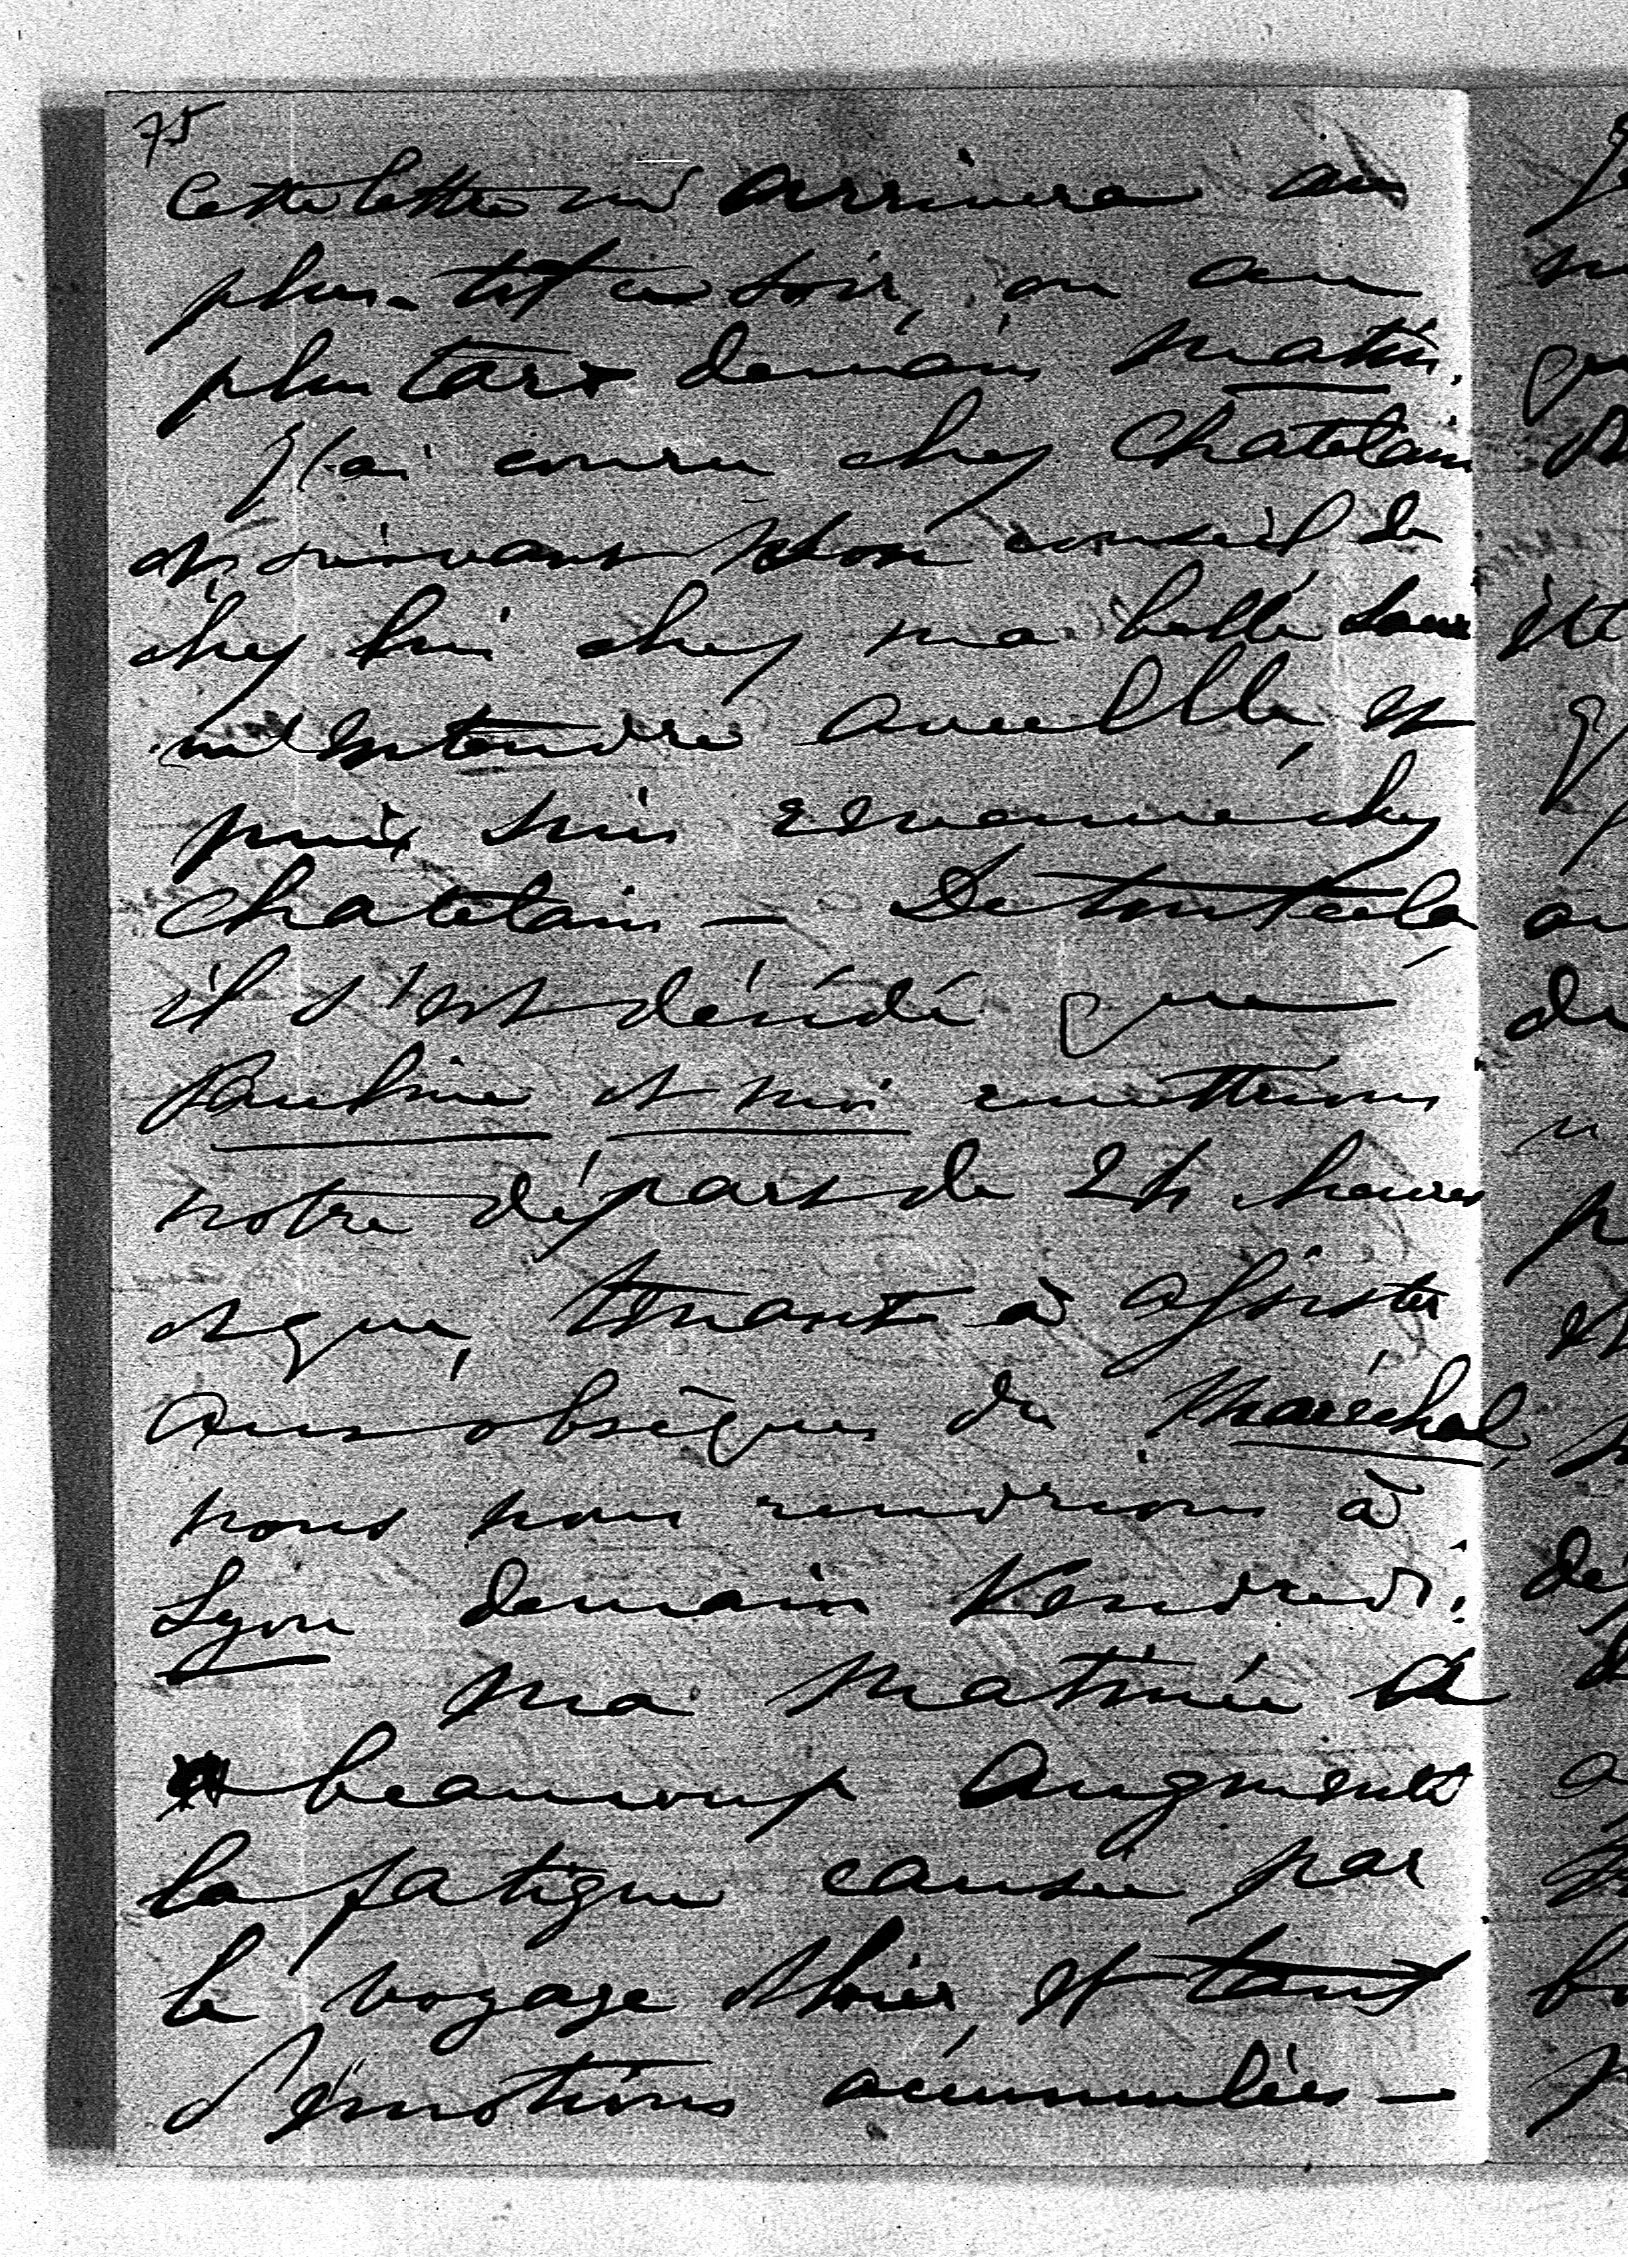 75
Cette lettre m'arrivera au
plus tôt ce soir, ou au
plus tard demain matin.
J'ai couru chez Chatelain
et, suivant son conseil de
chez lui chez ma belle soeur
m'entendre avec elle, et
puis suis revenue chez
Chatelain — De tout cela,
il s'est décidé que
Pauline et moi remettrions
notre départ de 24 heures
et que, tenant à assister
aux obsèques du Maréchal,
nous nous rendrions à
Lyon demain Vendredi.
Ma matinée a
beaucoup augmenté
la fatigue causée par
le voyage d'hier et tant
d'émotions accumulées —